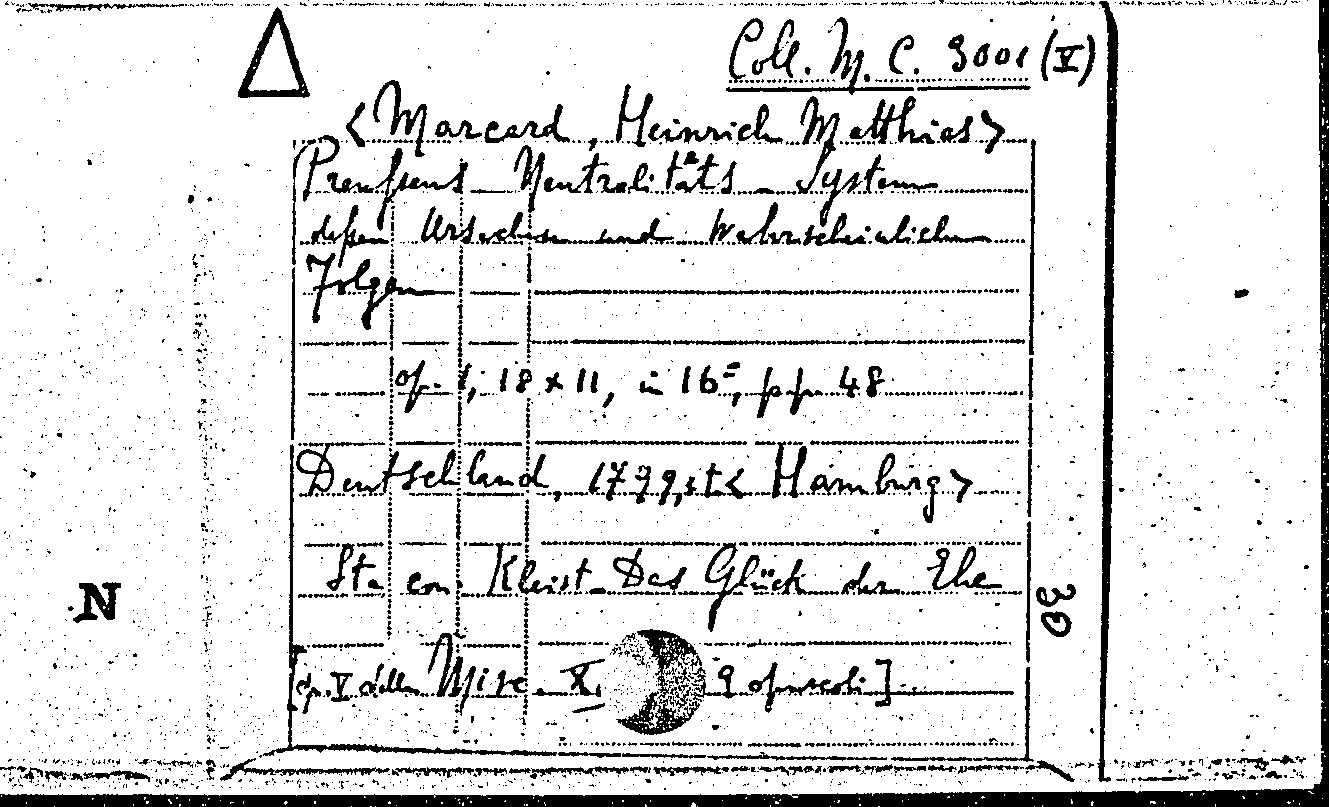 Coll. M. C. 3001 (V)
<Marcard, Heinrich Matthias>
Preussens Neutralitäts-System
dessen Ursachen und wahrscheinlichen
Folgen
op. 1, 18 x 11, in 16=, pp. 48
Deutschland, 1799, s.t. < Hamburg >
Sta con Kleist - Das Glück der Ehe
30
N
[op. V della Misc. X. 9 opuscoli]